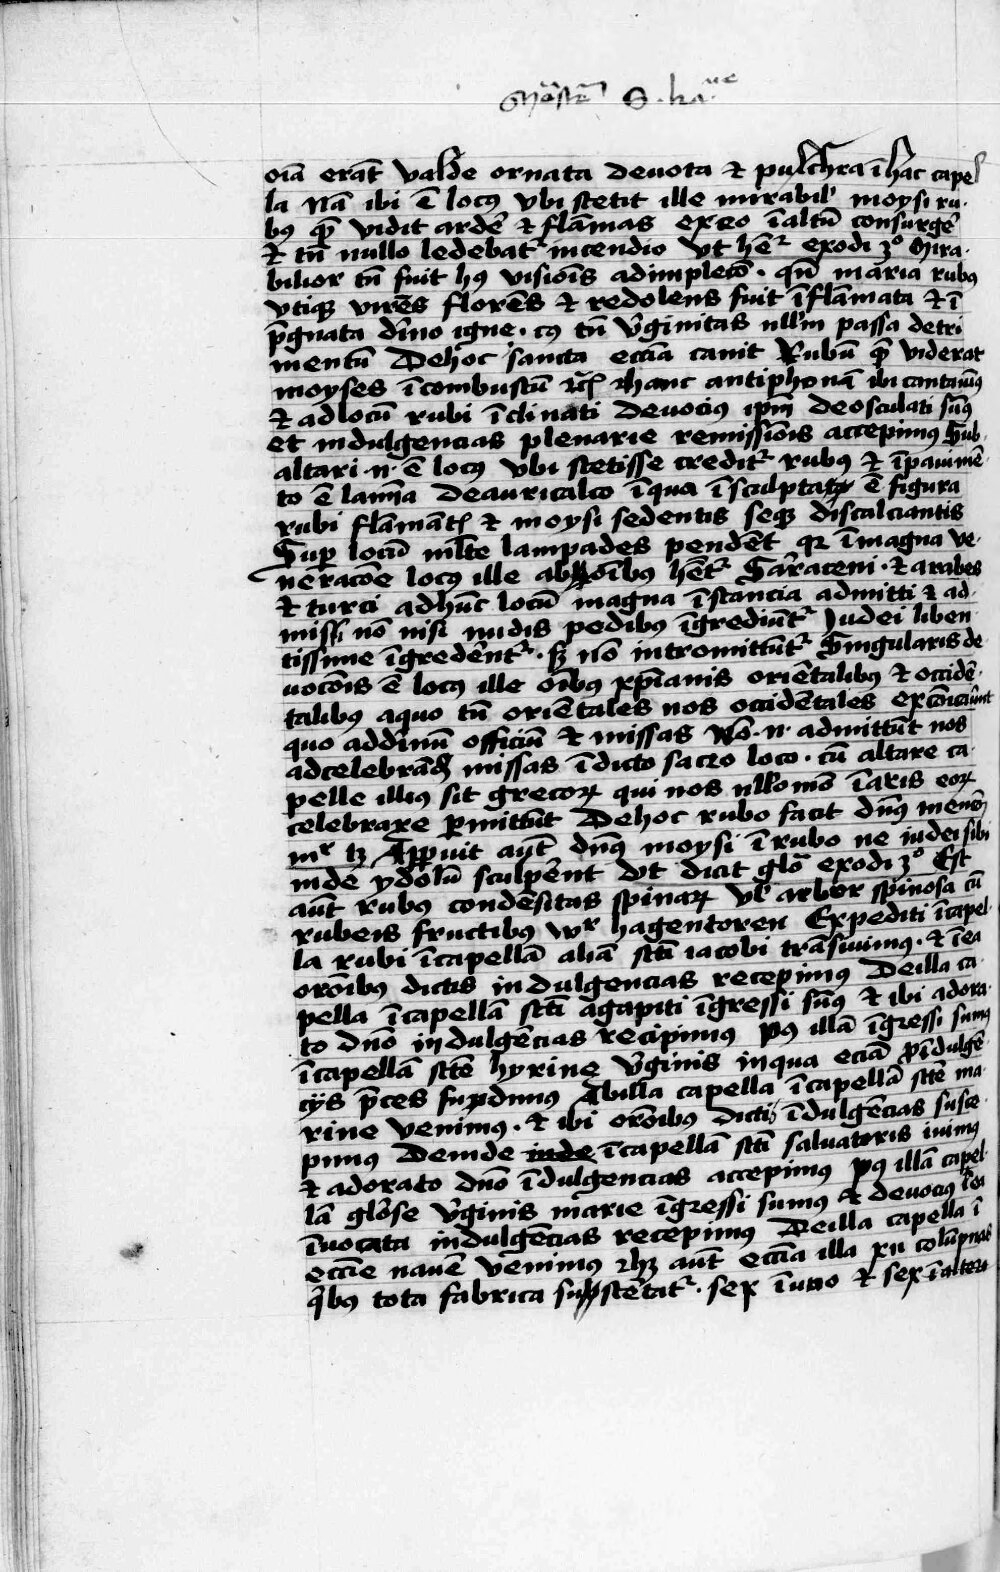 Mo̅ste̅ S. ka.ue
oi̅a era̅t valde ornata deuota et pulchra i̅ hac capel
la Na̅ ibi e̅ locus vbi stetit ille mirabilˈ moysi ru-
bus que̅ vidit arde̅ et fla̅mas ex eo i̅ altu̅ consurge̅
et tn̅ nullo ledebat᷑ incendio vt he̅t᷑ exodi 3º Mira-
bilior tn̅ fuit hus visio̅is adimpleco̅ . qn̅ maria rubus
vtique vire̅s flore̅s et redolens fuit i̅fla̅mata et i̅
p̅gnata diˈno igne . cus tn̅ vˈginitas nllˈm passa detri
mentu̅ De hoc sancta eccˈia canit Rubu̅ que̅ viderat
moyses i̅combustu̅ etcˈ et hanc antiphona̅ ibi cantauimus
et ad locu̅ rubi i̅clinati deuocius ip̅m deosculati sumˈus
et indulgencias plenarie remissio̅is accepimus Sub
altari .n. e̅ locus vbi stetisse credit᷑ rubus et i̅ pauime̅-
to e̅ lami̅a de auricalco i̅ qua i̅sculpta e̅ figura
rubi fla̅ma̅tˈ et moysi sedentis seque discalciantis
Super locu̅ mlˈte lampades pende̅t quia i̅ magna ve-
neraco̅e locus ille ab oi̅bus he̅t᷑ Sarˈaceni . et arabes
et turci ad hu̅c locu̅ magna i̅stancia admitti et ad-
missi no̅ nisi nudis pedibus i̅grediu̅t᷑ Judei liben
tissime i̅grede̅nt᷑ . sz no̅ intromittu̅t᷑ Singularis de
uoco̅is e̅ locus ille oi̅bus xp̅ianis orie̅talibus et occide̅-
talibus a quo tn̅ orie̅tales nos occide̅tales exco̅icau̅nt
quo ad diˈnu̅ officiu̅ et missas No̅ .n. admittu̅t nos
ad celebra̅dˈ missas i̅ dicto sacro loco . cu̅ altare ca-
pelle illius sit grecorꝝ qui nos nllˈo mo̅ i̅ aris eorꝝ
celebrare permittu̅t De hoc rubo facit dn̅us
Apparuit aut̅ dn̅us moysi i̅ rubo ne iudei sibi
inde ydolu̅ sculpere̅nt vt dicit glo̅ exodi 3º Est
aut̅ rubus conde̅sitas spinarꝝ vlˈ arbor spinosa cu̅
rubeis fructibus wr hagentoren Expediti i̅ capel
la rubi i̅ capella̅ alia̅ scti̅ iacobi tra̅siuimus . et i̅ ea
oro̅ibus dictis indulgencias recepimus De illa ca
pella i̅ capella̅ scti̅ agapiti i̅gressi sumˈus et ibi adora-
to dn̅o indulge̅cias recipimus post illa̅ i̅gressi sumus
i̅ capella̅ scte̅ hyrine vˈginis in qua ecia̅ pro i̅dulge̅-
cijs preces fu̅dimus Ab illa capella i̅ capella̅ scte̅ ma-
rine venimus . et ibi oro̅ibus dictis i̅dulge̅cias susce-
pimus Deinde inde i̅ capella̅ scti̅ saluatoris iuimus
et adorato dn̅o i̅dulgencias accepimus post illa̅ capel-
la̅ glo̅se vˈginis marie i̅gressi sumus et deuocius i̅ ea
i̅uocata indulge̅cias recepimus De illa capella i̅
eccˈie naue̅ venimus et hz aut̅ eccˈia illa xij colu̅pnas
qˈbus tota fabrica suste̅tat᷑ . sex i̅ uno et sex i̅ altero